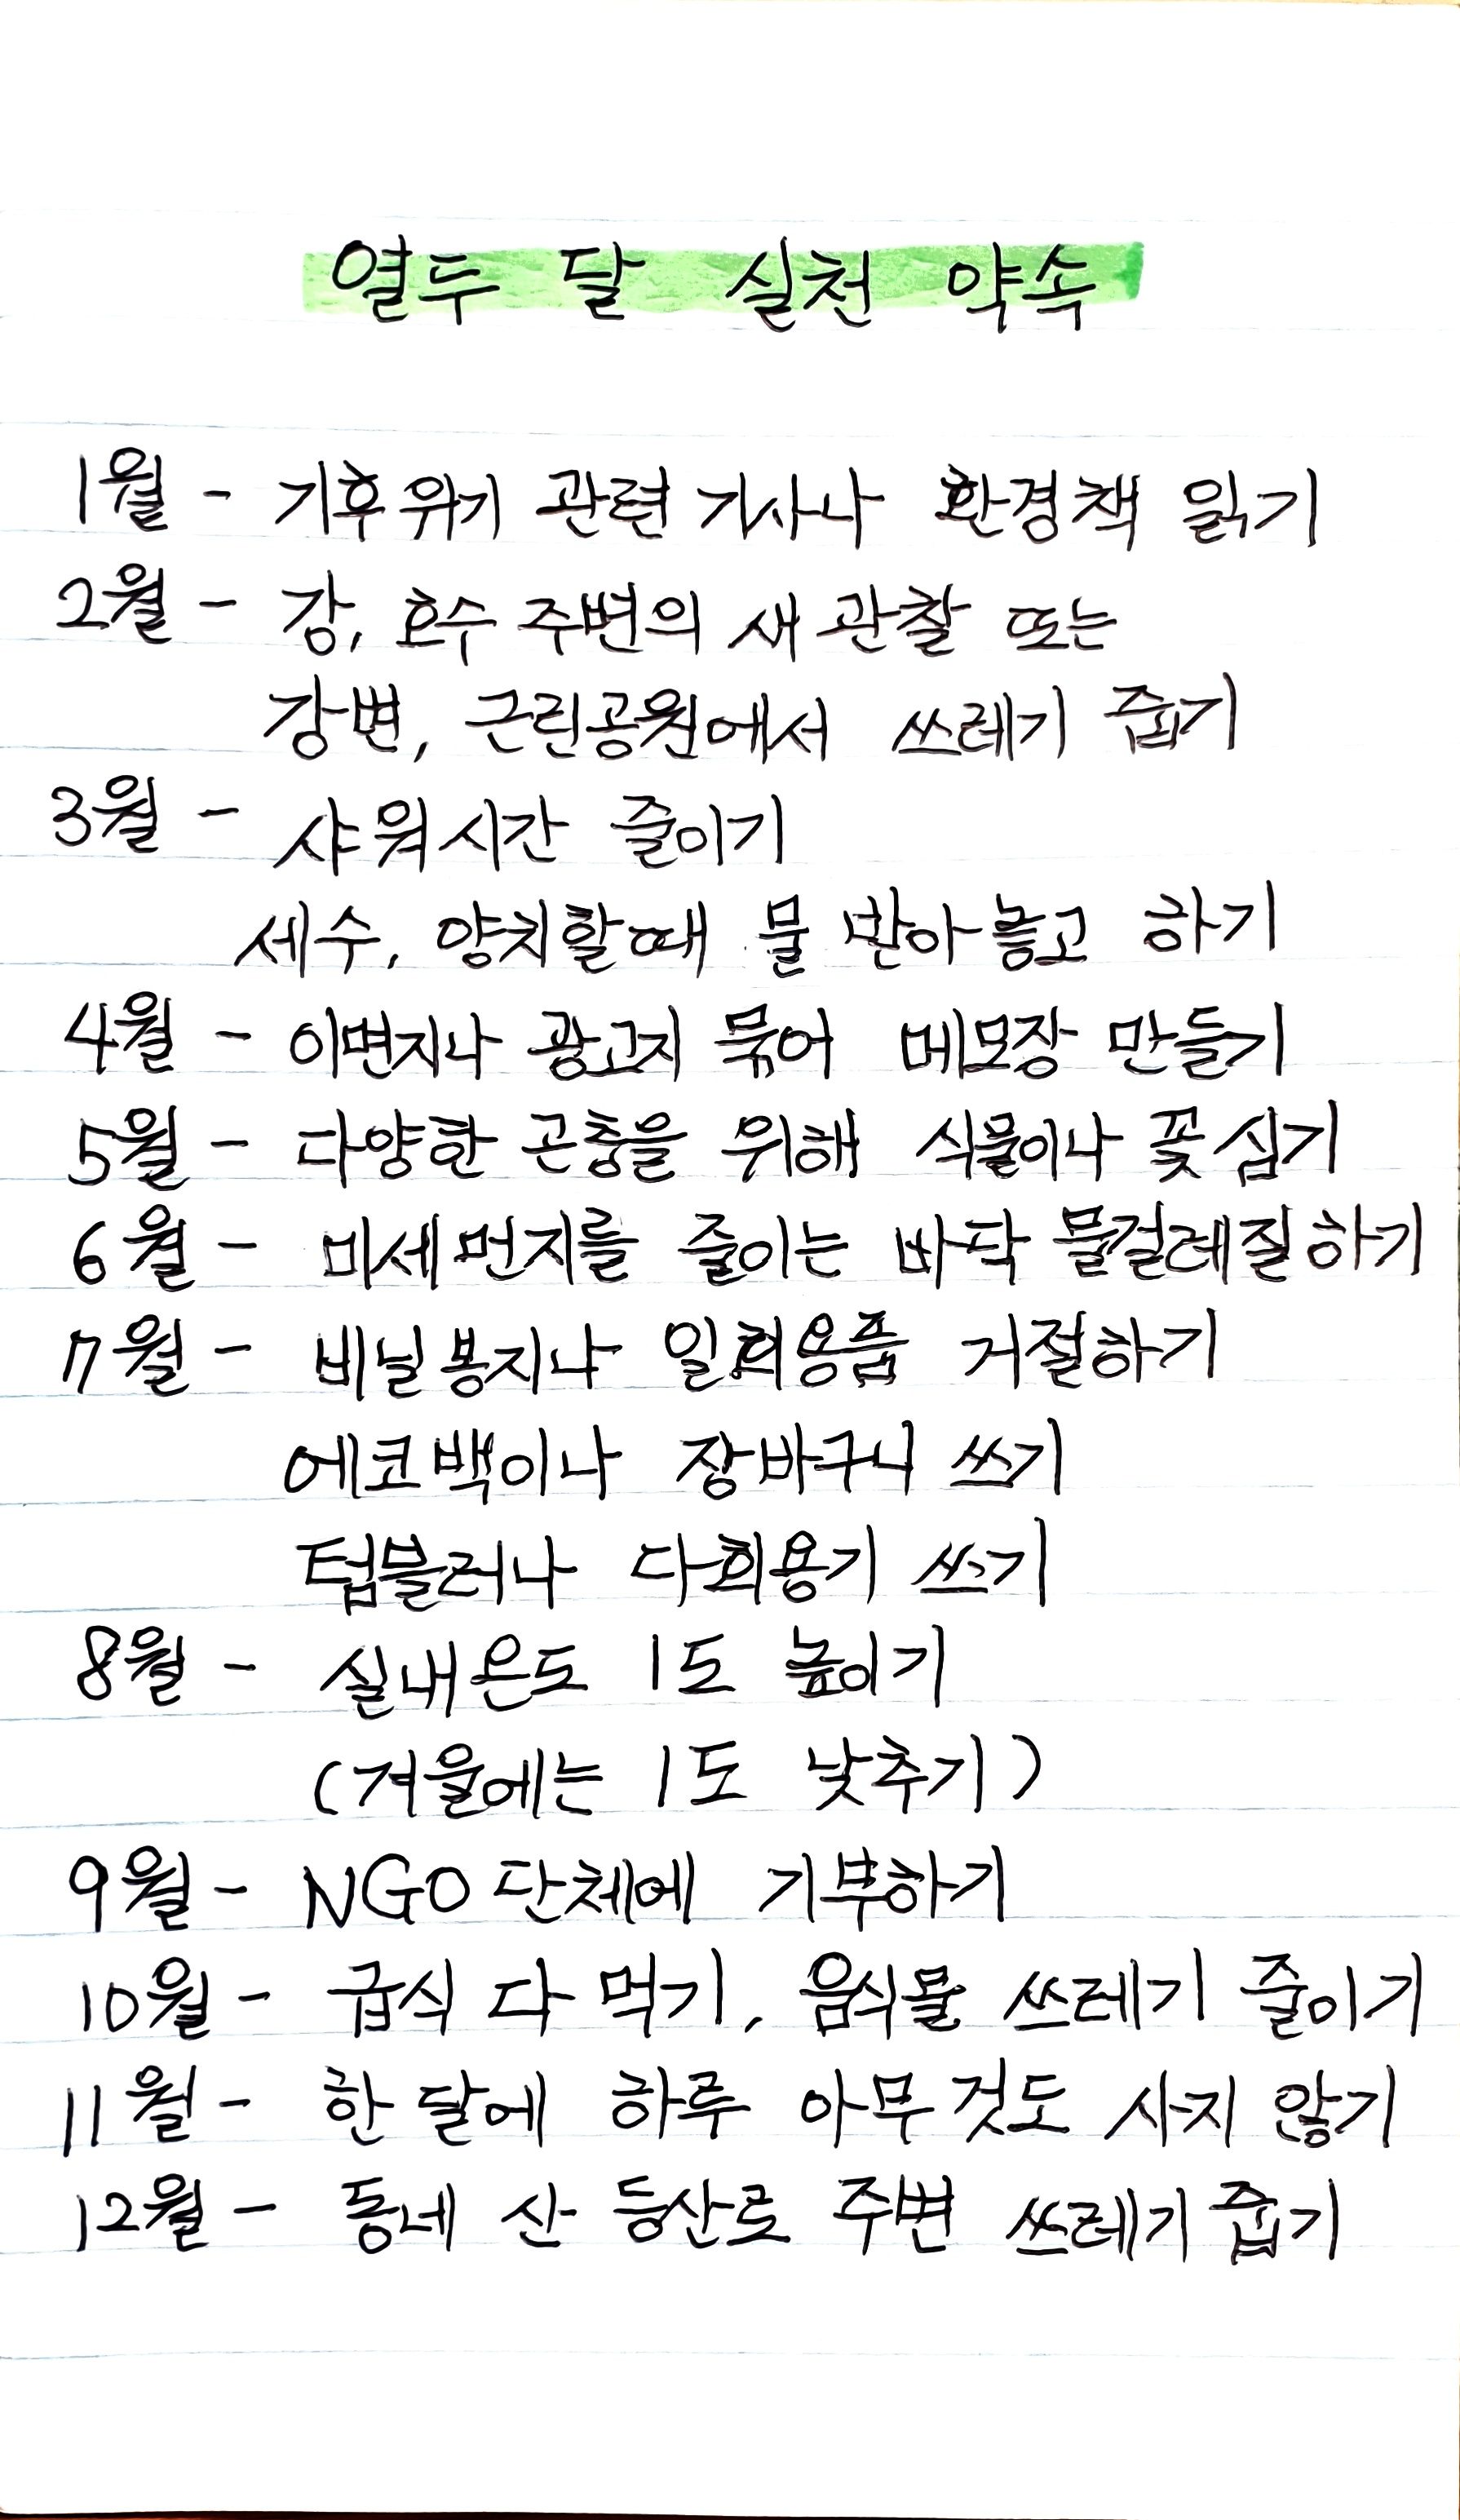 열두 달 실천 약속
1월 - 기후위기 관련 기사나 환경책 읽기
2월 - 강, 호수 주변의 새 관찰 또는
강변, 근린공원에서 쓰레기 줍기
3월 - 샤워시간 줄이기
세수, 양치할때 물 받아 놓고 하기
4월 - 이면지나 광고지 묶어 메모장 만들기
5월 - 다양한 곤충을 위해 식물이나 꽃 심기
6월 - 미세먼지를 줄이는 바닥 물걸레질하기
7월 - 비닐봉지나 일회용품 거절하기
에코백이나 장바구니 쓰기
텀블러나 다회용기 쓰기
8월 - 실내온도 1도 높이기
(겨울에는 1도 낮추기)
9월 - NGO 단체에 기부하기
10월 - 급식 다 먹기, 음식물 쓰레기 줄이기
11월 - 한 달에 하루 아무것도 사지 않기
12월 - 동네 산 등산로 주변 쓰레기 줍기